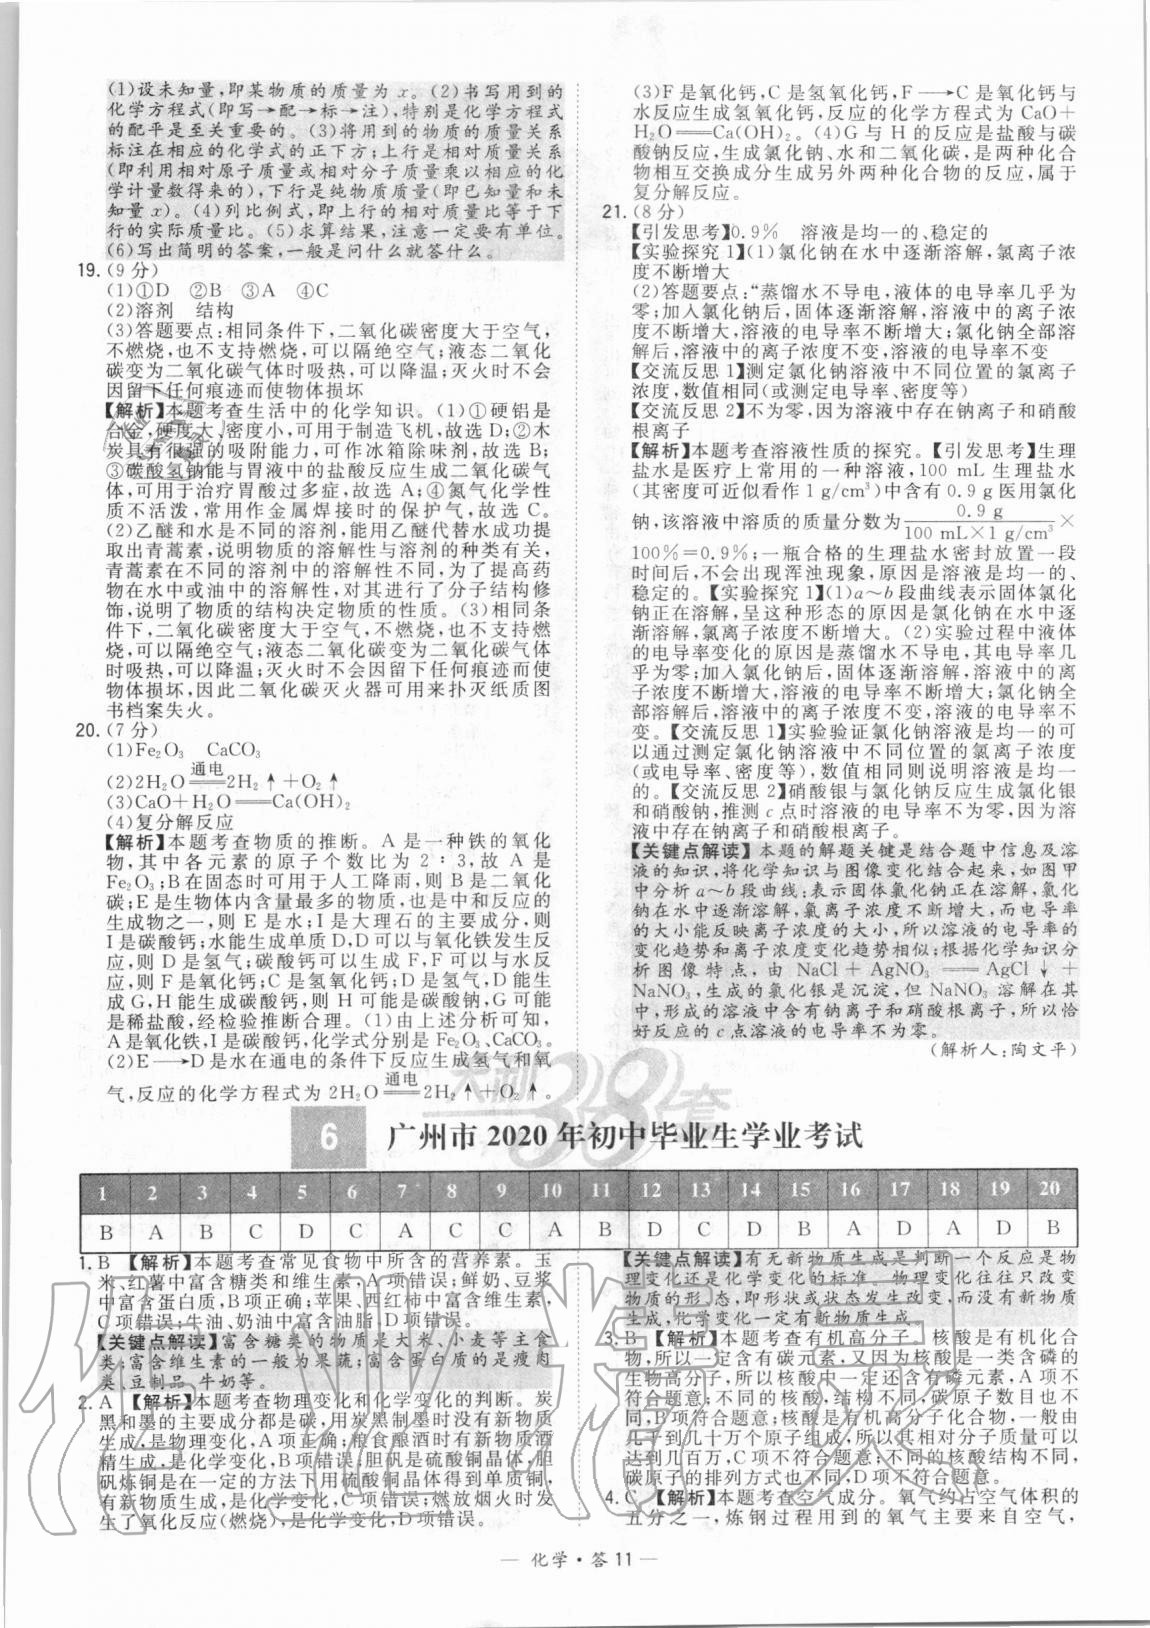 (1)设未知量,即某物质的质量为 x。(2)书写用到的
化学方程式(即写→配→标→注),特别是化学方程式
的配平是至关重要的。(3)将用到的物质的质量关系
标注在相应的化学式的正下方;上行是相对质量关系
(即利用相对原子质量或相对分子质量乘以相应的化
学计量数得来的),下行是纯物质质量(即已知量和未
知量 x)。(4)列比例式,即上行的相对质量比等于下
行的实际质量比。(5)求算结果,注意一定要有单位。
(6)写出简明的答案,一般是问什么就答什么。
19.(9 分)
(1)①D ②B ③A ④C
(2)溶剂 结构
(3)答题要点:相同条件下,二氧化碳密度大于空气,
不燃烧,也不支持燃烧,可以隔绝空气;液态二氧化
碳变为二氧化碳气体时吸热,可以降温;灭火时不会
因留下任何痕迹而使物体损坏
【解析】本题考查生活中的化学知识。(1)①硬铝是
合金,硬度大、密度小,可用于制造飞机,故选 D;②木
炭具有很强的吸附能力,可作冰箱除味剂,故选 B;
③碳酸氢钠能与胃液中的盐酸反应生成二氧化碳气
体,可用于治疗胃酸过多症,故选 A;④氮气化学性
质不活泼,常用作金属焊接时的保护气,故选 C。
(2)乙醚和水是不同的溶剂,能用乙醚代替水成功提
取出青蒿素,说明物质的溶解性与溶剂的种类有关,
青蒿素在不同的溶剂中的溶解性不同,为了提高药
物在水中或油中的溶解性,对其进行了分子结构修
饰,说明了物质的结构决定物质的性质。(3)相同条
件下,二氧化碳密度大于空气,不燃烧,也不支持燃
烧,可以隔绝空气;液态二氧化碳变为二氧化碳气体
时吸热,可以降温;灭火时不会因留下任何痕迹而使
物体损坏,因此二氧化碳灭火器可用来扑灭纸质图
书档案失火。
20.(7 分)
(1)Fe₂O₃ CaCO₃
(2)2H₂O══通电══2H₂↑+O₂↑
(3)CaO+H₂O══Ca(OH)₂
(4)复分解反应
【解析】本题考查物质的推断。A 是一种铁的氧化
物,其中各元素的原子个数比为 2∶3,故 A 是
Fe₂O₃;B在固态时可用于人工降雨,则 B 是二氧化
碳;E是生物体内含量最多的物质,也是中和反应的
生成物之一,则 E 是水;I 是大理石的主要成分,则
I 是碳酸钙;水能生成单质 D,D可以与氧化铁发生反
应,则 D 是氢气;碳酸钙可以生成 F,F 可以与水反
应,则 F 是氧化钙;C是氢氧化钙;D 是氢气,D 能生
成 G,H 能生成碳酸钙,则 H 可能是碳酸钠,G 可能
是稀盐酸,经检验推断合理。(1)由上述分析可知,
A 是氧化铁,I 是碳酸钙,化学式分别是 Fe₂O₃、CaCO₃。
(2)E→D 是水在通电的条件下反应生成氢气和氧
气,反应的化学方程式为 2H₂O══通电══2H₂↑+O₂↑。
(3)F是氧化钙,C是氢氧化钙,F→C是氧化钙与
水反应生成氢氧化钙,反应的化学方程式为 CaO+
H₂O══Ca(OH)₂。(4)G 与 H 的反应是盐酸与碳
酸钠反应,生成氯化钠、水和二氧化碳,是两种化合
物相互交换成分生成另外两种化合物的反应,属于
复分解反应。
21.(8 分)
【引发思考】0.9% 溶液是均一的、稳定的
【实验探究 1】(1)氯化钠在水中逐渐溶解,氯离子浓
度不断增大
(2)答题要点:“蒸馏水不导电,液体的电导率几乎为
零;加入氯化钠后,固体逐渐溶解,溶液中的离子浓
度不断增大,溶液的电导率不断增大;氯化钠全部溶
解后,溶液中的离子浓度不变,溶液的电导率不变
【交流反思 1】测定氯化钠溶液中不同位置的氯离子
浓度,数值相同(或测定电导率、密度等)
【交流反思 2】不为零,因为溶液中存在钠离子和硝酸
根离子
【解析】本题考查溶液性质的探究。【引发思考】生理
盐水是医疗上常用的一种溶液,100 mL 生理盐水
(其密度可近似看作 1 g/cm³)中含有 0.9 g 医用氯化
钠,该溶液中溶质的质量分数为 0.9 g/(100 mL×1 g/cm³) ×
100%=0.9%;一瓶合格的生理盐水密封放置一段
时间后,不会出现浑浊现象,原因是溶液是均一的、
稳定的。【实验探究 1】(1)a~b 段曲线表示固体氯化
钠正在溶解,呈这种形态的原因是氯化钠在水中逐
渐溶解,氯离子浓度不断增大。(2)实验过程中液体
的电导率变化的原因是蒸馏水不导电,其电导率几
乎为零;加入氯化钠后,固体逐渐溶解,溶液中的离子
浓度不断增大,溶液的电导率不断增大;氯化钠全
部溶解后,溶液中的离子浓度不变,溶液的电导率不
变。【交流反思 1】实验验证氯化钠溶液是均一的可
以通过测定氯化钠溶液中不同位置的氯离子浓度
(或电导率、密度等),数值相同则说明溶液是均一
的。【交流反思 2】硝酸银与氯化钠反应生成氯化银
和硝酸钠,推测 c 点时溶液的电导率不为零,因为溶
液中存在钠离子和硝酸根离子。
【关键点解读】本题的解题关键是结合题中信息及溶
液的知识,将化学知识与图像变化结合起来,如图甲
中分析 a~b 段曲线,表示固体氯化钠正在溶解,氯化
钠在水中逐渐溶解,氯离子浓度不断增大,而电导率
的大小能反映离子浓度的大小,所以溶液的电导率的
变化趋势和离子浓度变化趋势相似;根据化学知识分
析图像特点,由 NaCl + AgNO₃ ══ AgCl↓ +
NaNO₃,生成的氯化银是沉淀,但 NaNO₃ 溶解在其
中,形成的溶液中含有钠离子和硝酸根离子,所以恰
好反应的 c 点溶液的电导率不为零。
(解析人:陶文平)
天利38套
6 广州市 2020 年初中毕业生学业考试
1 2 3 4 5 6 7 8 9 10 11 12 13 14 15 16 17 18 19 20
B A B C D C A C C A B D C D B A D A D B
1. B 【解析】本题考查常见食物中所含的营养素。玉
米、红薯中富含糖类和维生素,A 项错误;鲜奶、豆浆
中富含蛋白质,B项正确;苹果、西红柿中富含维生素,
C 项错误;牛油、奶油中富含油脂,D 项错误。
【关键点解读】富含糖类的物质是大米、小麦等主食
类;富含维生素的一般为果蔬;富含蛋白质的是瘦肉
类、豆制品、牛奶等。
2. A 【解析】本题考查物理变化和化学变化的判断。炭
黑和墨的主要成分都是碳,用炭黑制墨时没有新物质
生成,是物理变化,A 项正确;粮食酿酒时有新物质酒
精生成,是化学变化,B 项错误;胆矾是硫酸铜晶体,胆
矾炼铜是在一定的方法下用硫酸铜晶体得到单质铜,
有新物质生成,是化学变化,C 项错误;燃放烟火时发
生了氧化反应(燃烧),是化学变化,D 项错误。
【关键点解读】有无新物质生成是判断一个反应是物
理变化还是化学变化的标准。物理变化往往只改变
物质的形态,即形状或状态发生改变,而没有新物质
生成,化学变化一定有新物质生成。
3. B 【解析】本题考查有机高分子。核酸是有机化合
物,所以一定含有碳元素,又因为核酸是一类含磷的
生物高分子,所以一定还含有磷元素,A项不
符合题意;不同的核酸,结构不同,碳原子数目也不
同,B 项符合题意;核酸是有机高分子化合物,一般由
几千到几十万个原子组成,所以相对分子质量可以
达到几百万,C 项不符合题意;不同的核酸结构不同,
碳原子的排列方式也不同,D 项不符合题意。
4. C 【解析】本题考查空气成分。氧气约占空气体积的
五分之一,炼钢过程里用到的氧气主要来自空气,
— 化学·答 11 —
作业精灵